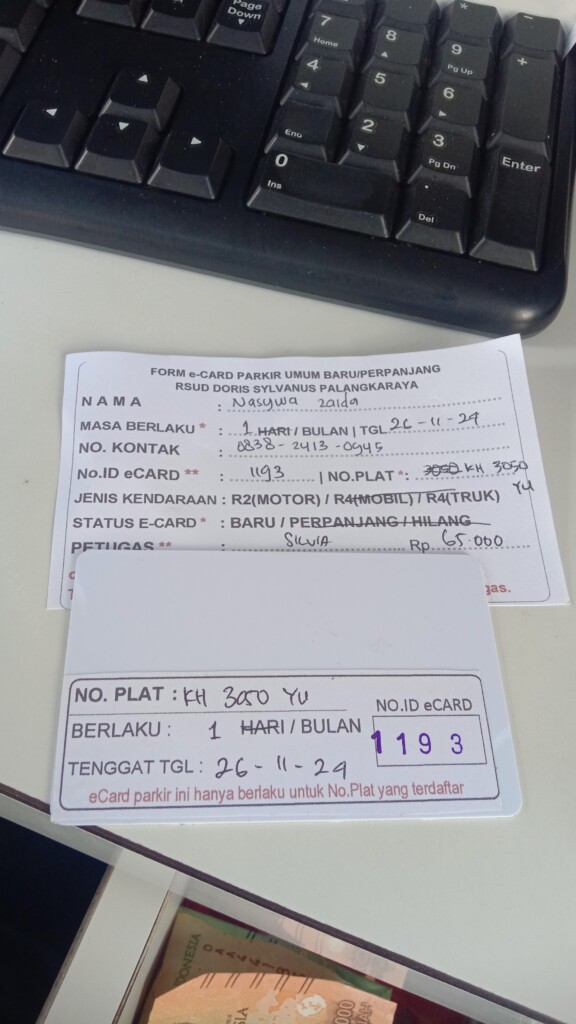 Page Down
*
-
7 Home
8
9 Pg Up
+
4
5
6
End
2
3 Pg Dn
Enter
0 Ins
. Del
FORM e-CARD PARKIR UMUM BARU/PERPANJANG
RSUD DORIS SYLVANUS PALANGKARAYA
NAMA : Nasywa zaida
MASA BERLAKU * : 1 HARI / BULAN | TGL 26-11-24
NO. KONTAK : 0838-2413-0945
No.ID eCARD ** : 1193 | NO.PLAT *: 3050 KH 3050 YU
JENIS KENDARAAN : R2(MOTOR) / R4(MOBIL) / R4(TRUK)
STATUS E-CARD * : BARU / PERPANJANG / HILANG
PETUGAS ** : SILVIA Rp. 65.000
gas.
NO. PLAT : KH 3050 YU
NO.ID eCARD
BERLAKU : 1 HARI / BULAN
1193
TENGGAT TGL : 26-11-24
eCard parkir ini hanya berlaku untuk No.Plat yang terdaftar